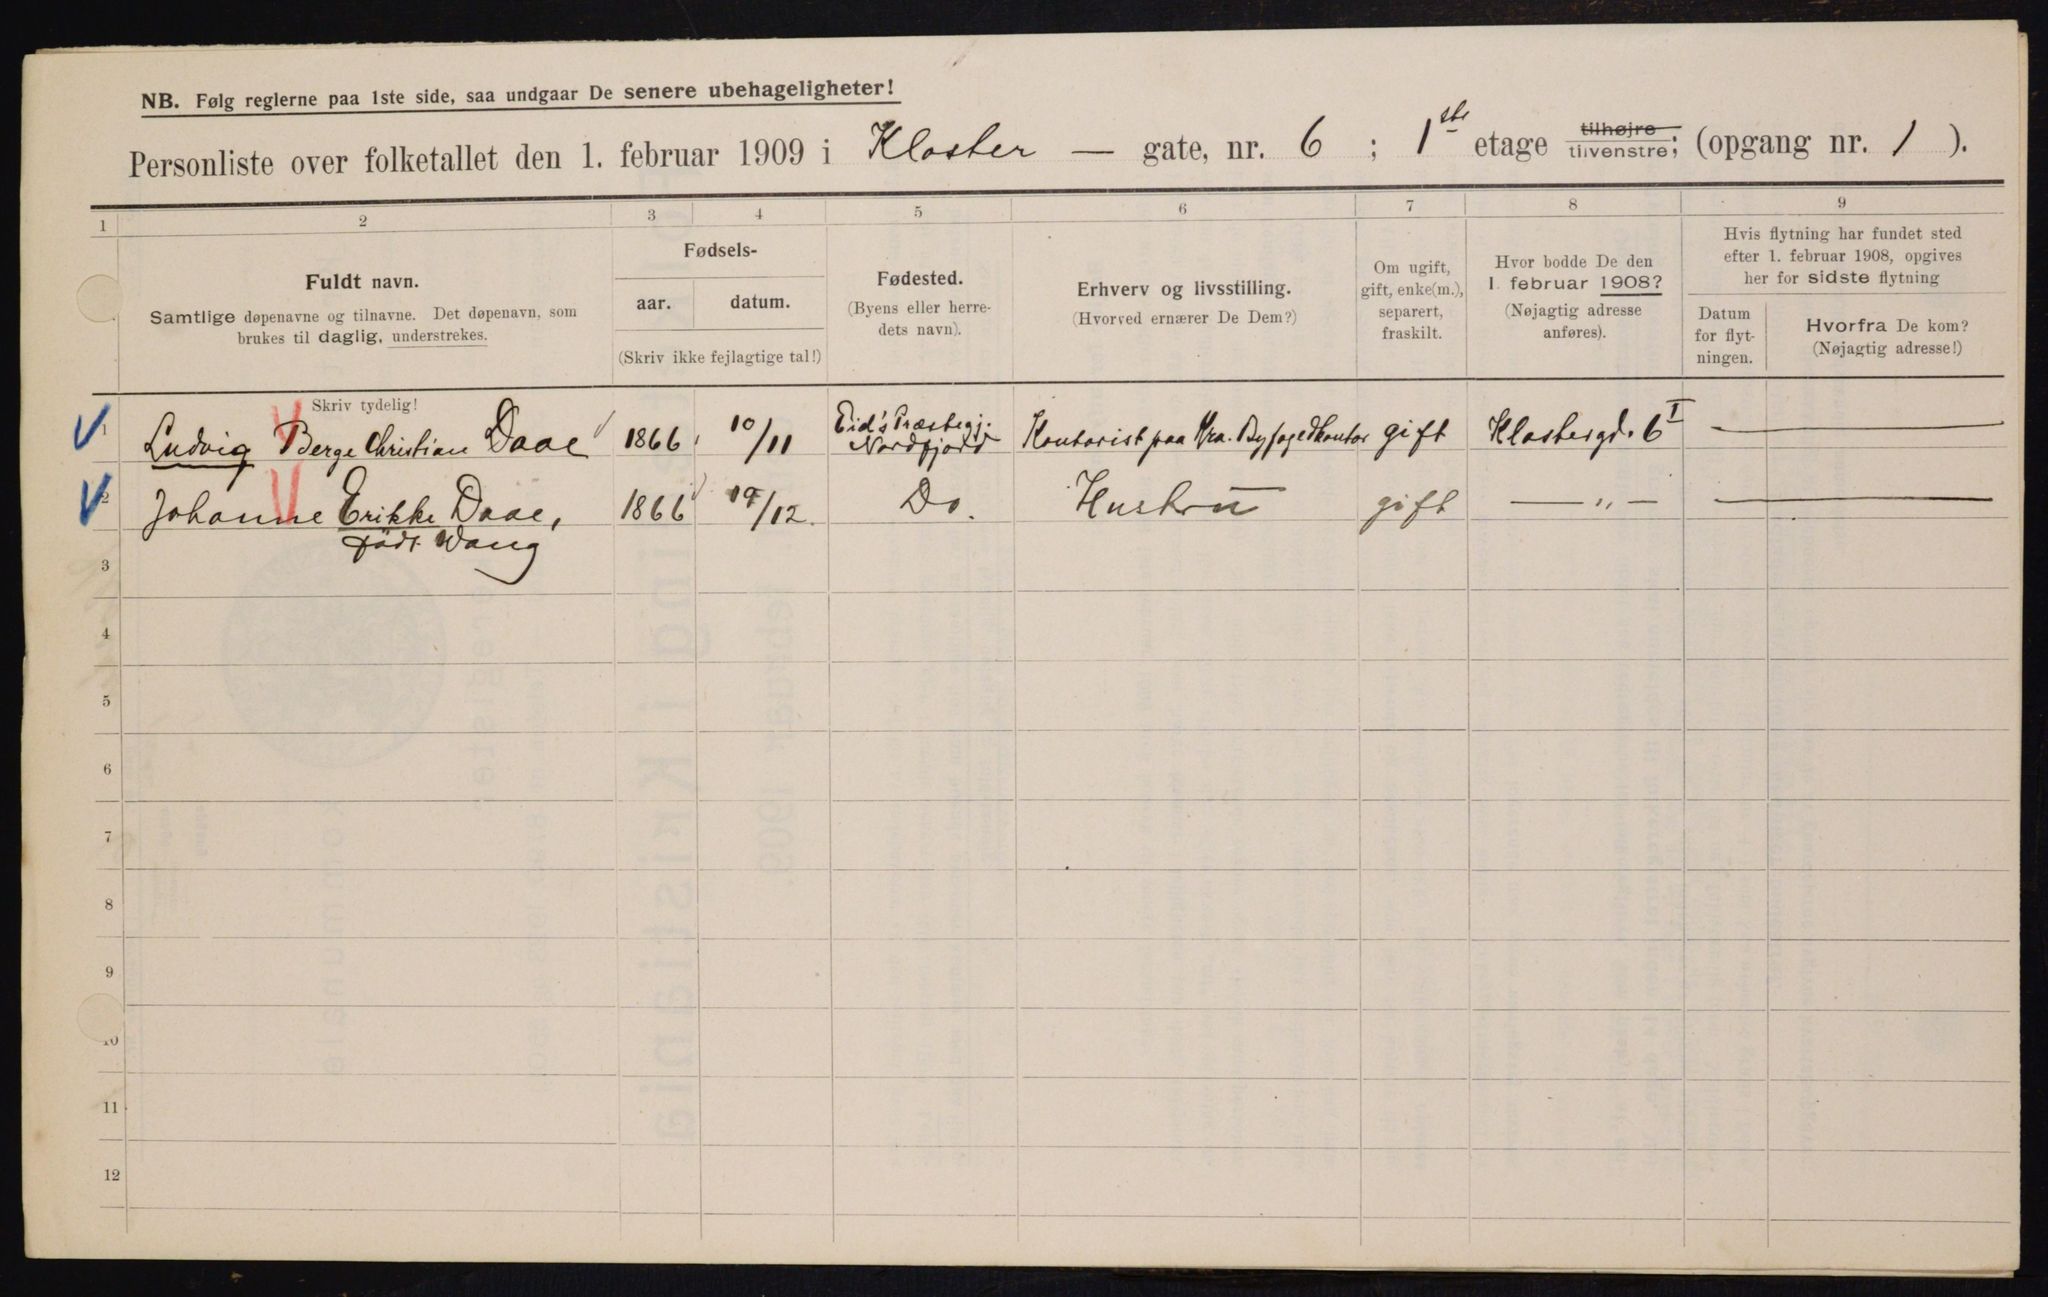 NB. Følg reglerne paa 1ste side, saa undgaar De senere ubehageligheter!
Personliste over folketallet den 1. februar 1909 i Kloster — gate, nr. 6 ; 1ste etage tilhøjre tilvenstre; (opgang nr. 1 ).
1 2 3 4 5 6 7 8 9
Fuldt navn.
Samtlige døpenavne og tilnavne. Det døpenavn, som
brukes til daglig, understrekes.
Skriv tydelig!
Fødsels-
aar. datum.
(Skriv ikke fejlagtige tal!)
Fødested.
(Byens eller herre-
dets navn).
Erhverv og livsstilling.
(Hvorved ernærer De Dem?)
Om ugift,
gift, enke(m.),
separert,
fraskilt.
Hvor bodde De den
1. februar 1908?
(Nøjagtig adresse
anføres).
Hvis flytning har fundet sted
efter 1. februar 1908, opgives
her for sidste flytning
Datum
for flyt-
ningen.
Hvorfra De kom?
(Nøjagtig adresse!)
1 Ludvig Berge Christian Daae 1866 10/11 Eid's Præstegj. Nordfjord Kontorist paa Kra. Byfogedkontor gift Klostergd. 6 I —
2 Johanne Erikke Daae, 1866 19/12. Do. Hustru gift — " — —
født Wang
3
4
5
6
7
8
9
10
11
12